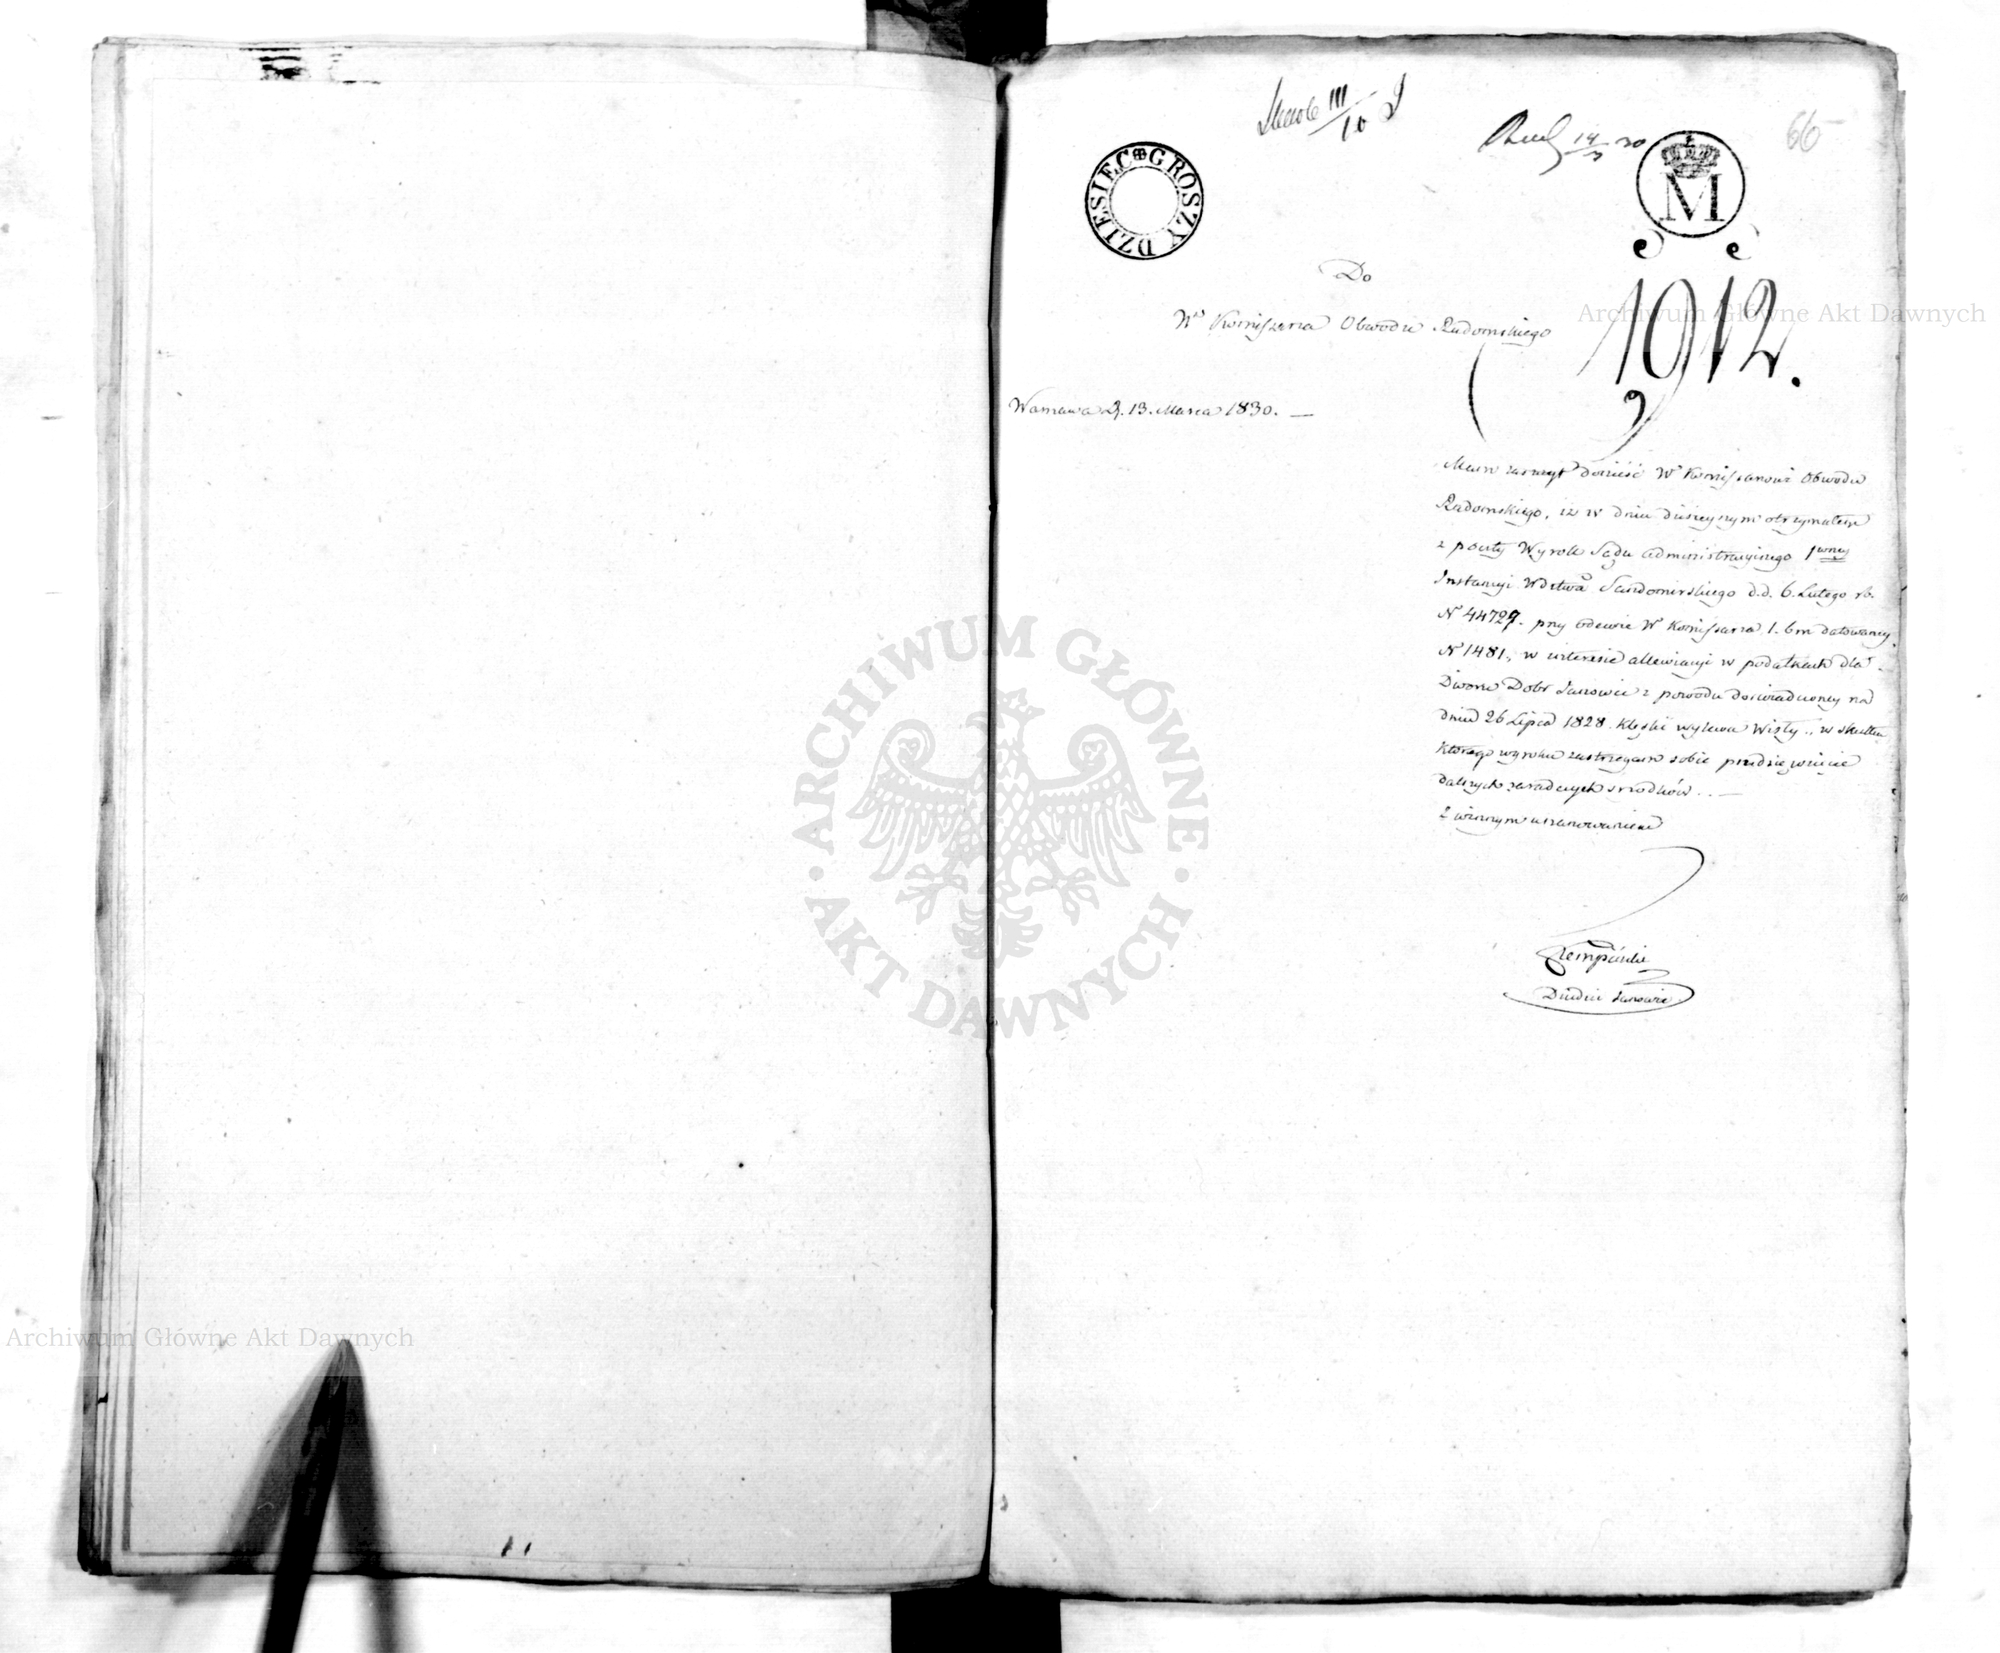 III/10
14/3 30
66
DZIESIEC GROSZY
M
Do
Wo Komissarza Obwodu Radomskiego
1912.
Warszawa d. 13. Marca 1830. —
Mam zaszczyt donieść Wu Komissarzowi Obwodu
Radomskiego, iż w dniu dzisieyszym otrzymałem
z poczty Wyrok Sądu Administracyinego 1wszey
Instancyi Wdztwa Sandomirskiego d.d. 6. Lutego rb.
No 44729. przy odezwie Wo Komissarza 1. bm datowaney
No 1481., w interesie allewiacyi w podatkach dla
Dworu Dobr Janowiec z powodu doświadczoney na
dniu 26 Lipca 1828. klęski wylewu Wisły., w skutku
którego wyroku zastrzegam sobie przedsięwzięcie
dalszych zaradczych srzodków.. —
Z winnym uszanowaniem
Dziedzic Janowca
ARCHIWUM GŁÓWNE
AKT DAWNYCH
Archiwum Główne Akt Dawnych
Archiwum Główne Akt Dawnych